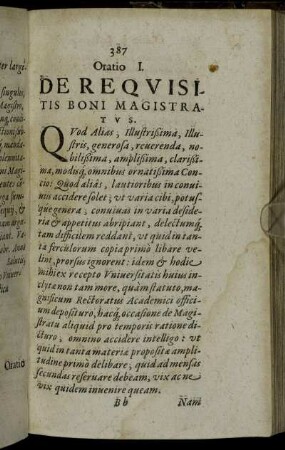 387
Oratio I.
DE REQVISI-
TIS BONI MAGISTRA-
TVS.
QVod Alias, Illustrissima, Illu-
stris, generosa, reuerenda, no-
bilissima, amplissima, clarissi-
ma, moduq́; omnibus ornatissima Con-
cio: Quod aliàs, lautioribus in conui-
uiis accidere solet; vt varia cibi, potus-
que genera; conuiuas in varia deside-
ria & appetitus abripiant, delectumq́;
tam difficilem reddant, vt quid in tan-
ta ferculorum copia primò libare ve-
lint, prorsus ignorent: idem & hodie
mihi ex recepto Vniuersitatis huius in-
clytæ non tam more, quàm statuto, ma-
gnificum Rectoratus Academici offici-
um deposituro, hacq́; occasione de Ma-
gistratu aliquid pro temporis ratione di-
cturo, omnino accidere intelligo: vt
quid in tanta materiæ propositæ ampli-
tudine primò delibare, quid ad mensas
secundas reseruare debeam, vix ac ne
vix quidem inuenire queam.
Bb Nam
Oratio